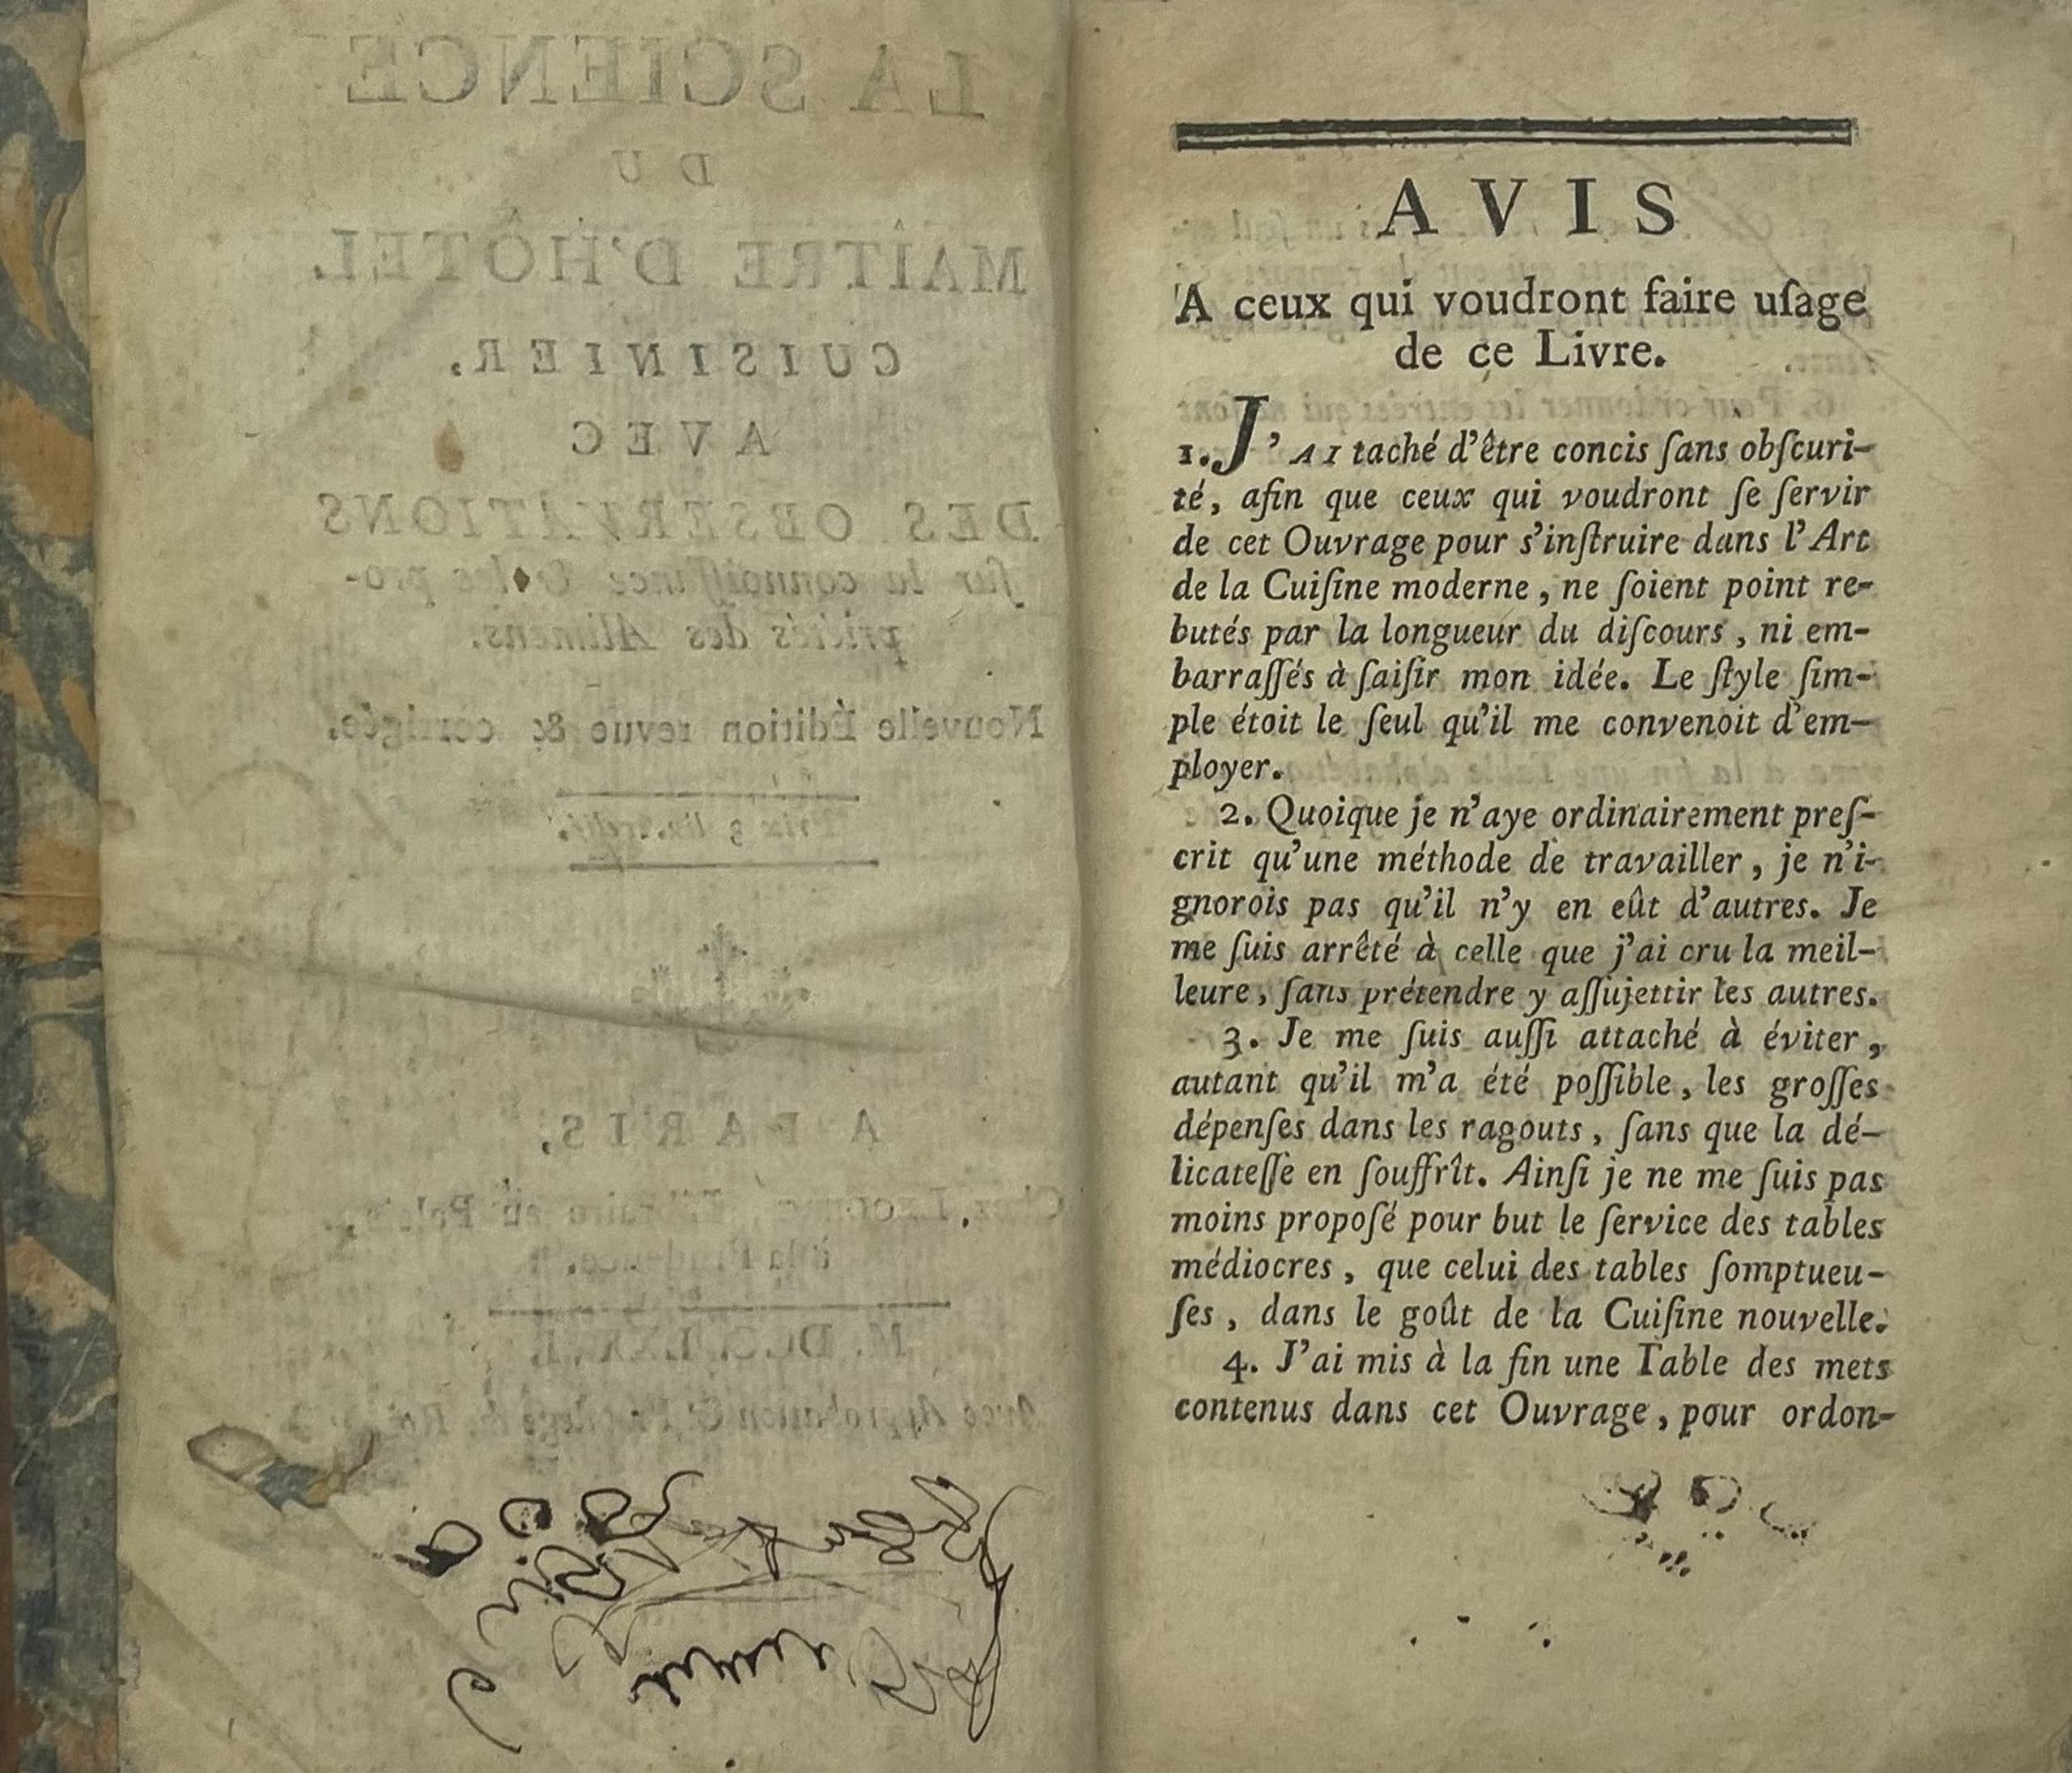 LA SCIENCE
DU
MAÎTRE D'HÔTEL
CUISINIER,
AVEC
DES OBSERVATIONS
ſur la connoiſſance & les pro-
priétés des Alimens.
Nouvelle Édition revue & corrigée.
A PARIS,
Chez Libraire au Palais,
à la Prudence.
Avec Approbation & Privilege du Roi.
AVIS
A ceux qui voudront faire uſage
de ce Livre.
1. J'AI taché d'être concis ſans obſcuri-
té, afin que ceux qui voudront ſe ſervir
de cet Ouvrage pour s'inſtruire dans l'Art
de la Cuiſine moderne, ne ſoient point re-
butés par la longueur du diſcours, ni em-
barraſſés à ſaiſir mon idée. Le ſtyle ſim-
ple étoit le ſeul qu'il me convenoit d'em-
ployer.
2. Quoique je n'aye ordinairement preſ-
crit qu'une méthode de travailler, je n'i-
gnorois pas qu'il n'y en eût d'autres. Je
me ſuis arrêté à celle que j'ai cru la meil-
leure, ſans prétendre y aſſujettir les autres.
3. Je me ſuis auſſi attaché à éviter,
autant qu'il m'a été poſſible, les groſſes
dépenſes dans les ragouts, ſans que la dé-
licateſſe en ſouffrît. Ainſi je ne me ſuis pas
moins propoſé pour but le ſervice des tables
médiocres, que celui des tables ſomptueu-
ſes, dans le goût de la Cuiſine nouvelle.
4. J'ai mis à la fin une Table des mets
contenus dans cet Ouvrage, pour ordon-